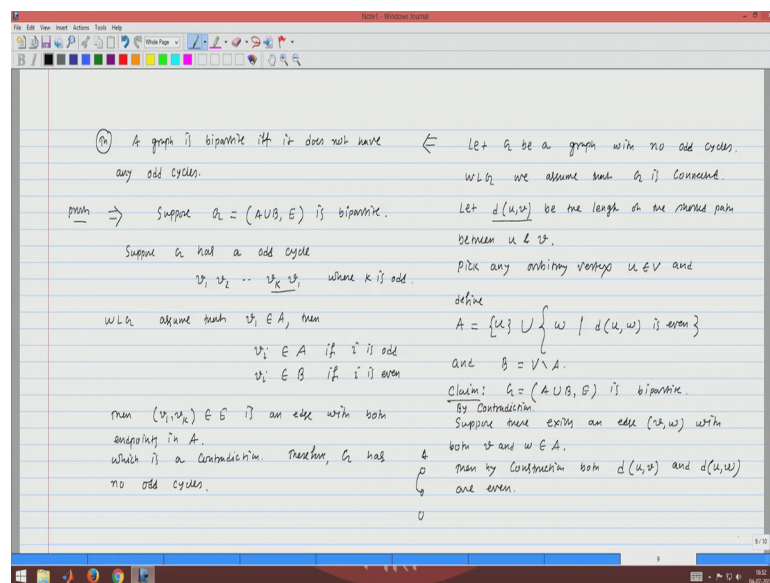 Note1 - Windows Journal
File Edit View Insert Actions Tools Help
Whole Page
B I
Th A graph is bipartite iff it does not have
any odd cycles.
proof ⇒ Suppose G = (A∪B, E) is bipartite.
Suppose G has a odd cycle
v₁ v₂ .. v_K v₁ where K is odd.
WLG assume that v₁ ∈ A, then
vᵢ ∈ A if i is odd
vᵢ ∈ B if i is even
Then (v₁, v_K) ∈ E is an edge with both
endpoints in A.
which is a contradiction. Therefore, G has
no odd cycles.
⇐ Let G be a graph with no odd cycles.
WLG we assume that G is connected.
Let d(u,v) be the length of the shortest path
between u & v.
Pick any arbitrary vertex u ∈ V and
define
A = {u} ∪ { w / d(u,w) is even }
and B = V \ A.
Claim: G = (A∪B, E) is bipartite.
By Contradiction.
Suppose there exists an edge (v,w) with
both v and w ∈ A.
Then by construction both d(u,v) and d(u,w)
are even.
9 / 10
9
16:52